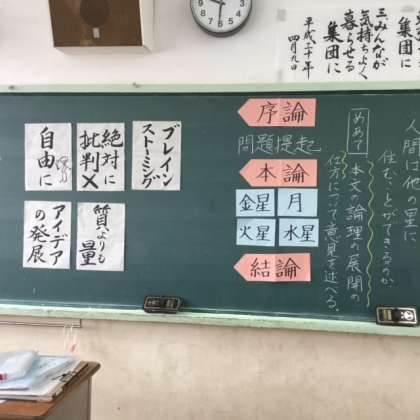 集団に
三みんなが
気持ちよく
暮らせる
集団に
平成二十年
四月九日
人間は他の星に
住むことができるのか
めあて
本文の論理の展開の
仕方について意見を述べる。
序論
問題提起
本論
金星 月
火星 水星
結論
ブレイン
ストーミング
絶対に
批判×
自由に
質よりも
量
アイデア
の発展